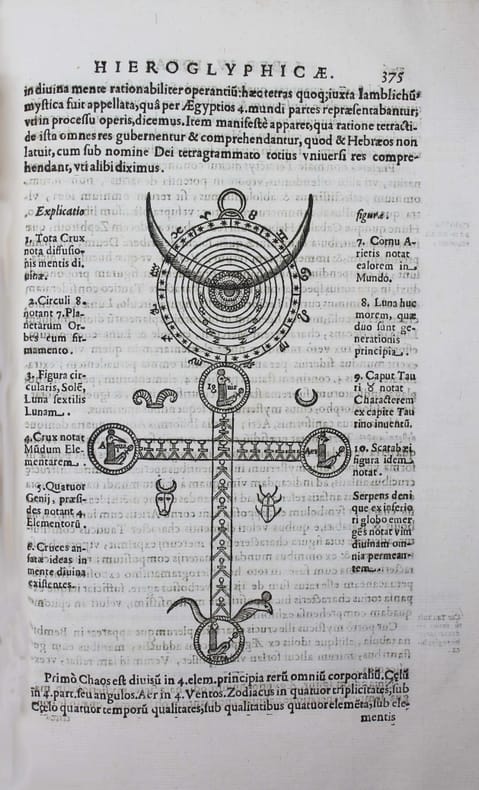 HIEROGLYPHICÆ. 375
in diuina mente rationabiliter operantiũ: hæc tetras quoq; iuxta Iamblichũ
mystica fuit appellata, quâ per Ægyptios 4. mundi partes repræsentabantur;
vti in processu operis, dicemus. Item manifestè apparet, qua ratione tetracti-
de ista omnes res gubernentur & comprehendantur, quod & Hebræos non
latuit, cum sub nomine Dei tetragrammato totius vniuersi res compre-
hendant, vti alibi diximus.
Explicatio
1. Tota Crux
nota diffusio-
nis mentis di-
uinæ.
2. Circuli 8.
notant 7. Pla-
netarum Or-
bes cum fir-
mamento.
3. Figura cir-
cularis, Solẽ,
Luna sextilis
Lunam.
4. Crux notat
Mũdum Ele-
mentarem.
5. Quatuor
Genij, præsi-
des notant 4.
Elementorũ.
6. Cruces an-
satæ ideas in
mente diuina
existentes.
figuræ.
7. Cornu A-
rietis notat
calorem in
Mundo.
8. Luna hu-
morem, quæ
duo sunt ge-
nerationis
principia.
9. Caput Tau
ri ♉ notat
Characterem
ex capite Tau
rino inuentũ.
10. Scarabæi
figura idem
notat.
Serpens deni
que ex inferio
ri globo emer
gẽs notat vim
diuinam om-
nia permean-
tem.
Primò Chaos est diuisũ in 4. elem. principia rerũ omniũ corporaliũ. Cęlũ
in 4. part. seu angulos. Aer in 4. Ventos. Zodiacus in quatuor triplicitates, sub
Cęlo quatuor temporũ qualitates, sub qualitatibus quatuor elemẽta, sub ele-
mentis